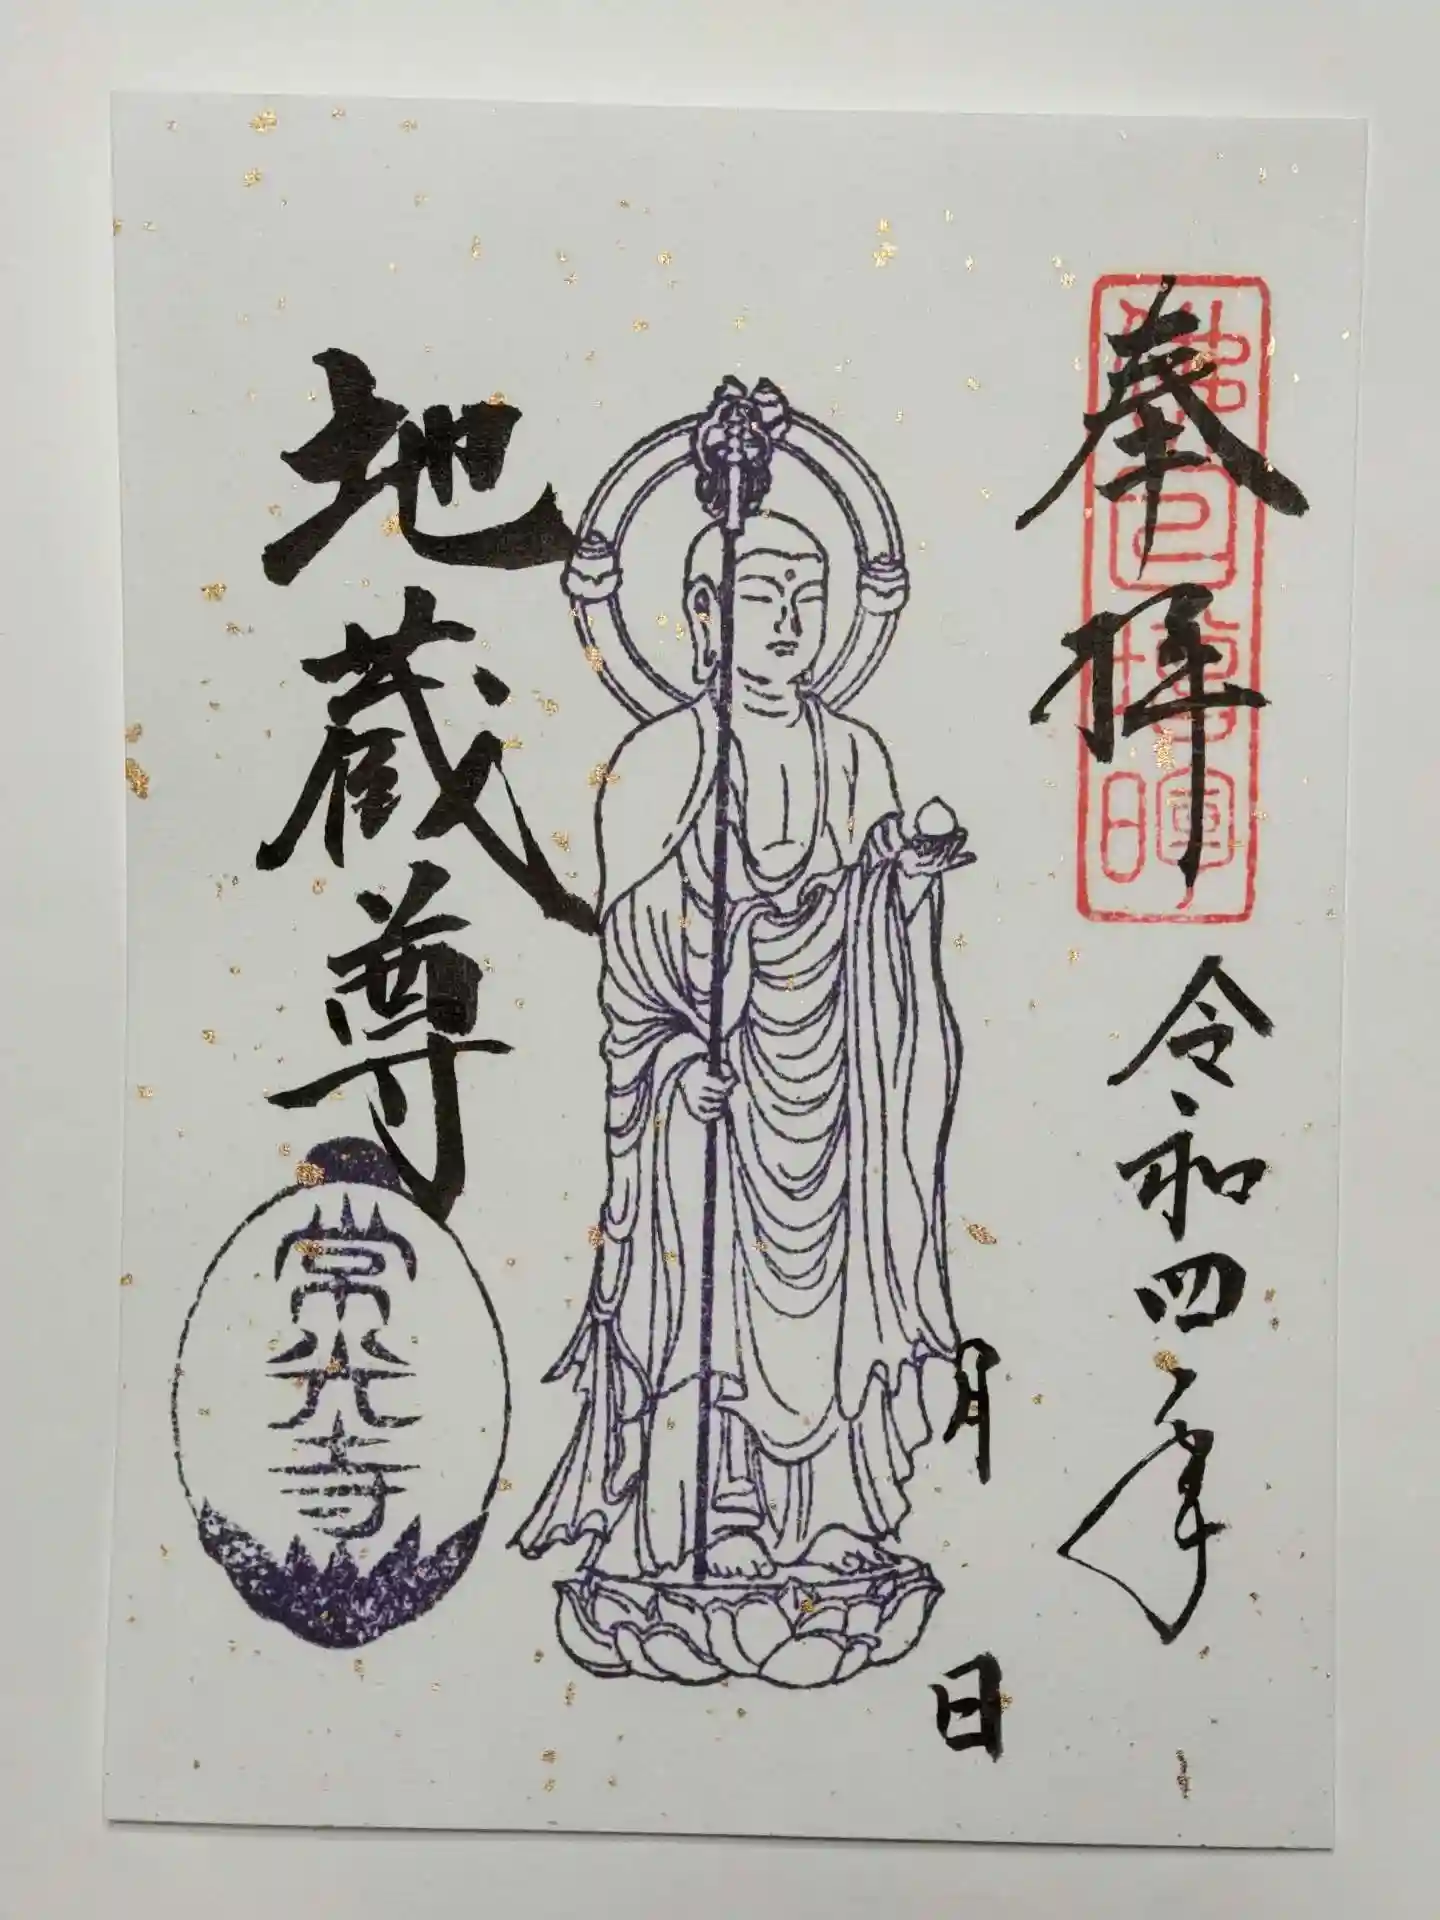 奉拝
令和四年
月
日
地蔵尊
常光寺